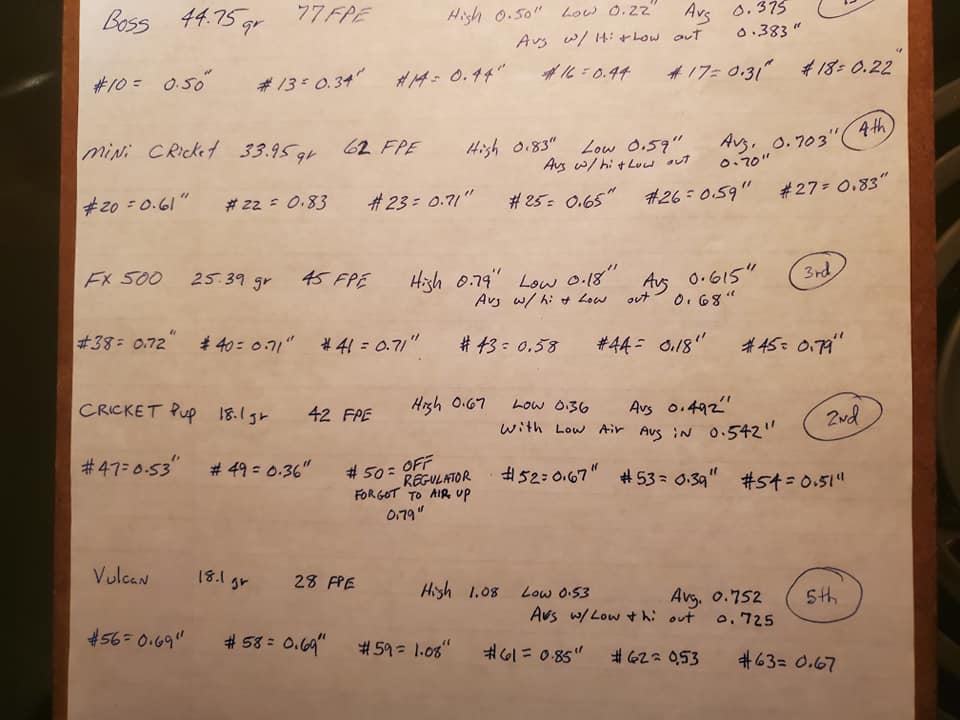 Boss 44.75 gr 77 FPE High 0.50" Low 0.22" Avg 0.375
Avg w/ Hi + Low out 0.383"
#10 = 0.50" #13 = 0.34" #14 = 0.44" #16 = 0.44 #17 = 0.31" #18 = 0.22"
MiNi CRicket 33.95 gr 62 FPE High 0.83" Low 0.59" Avg. 0.703" 4th
Avg w/ hi + Low out 0.70"
#20 = 0.61" #22 = 0.83 #23 = 0.71" #25 = 0.65" #26 = 0.59" #27 = 0.83"
FX 500 25.39 gr 45 FPE High 0.79" Low 0.18" Avg 0.615" 3rd
Avg w/ hi + Low out 0.68"
#38 = 0.72" #40 = 0.71" #41 = 0.71" #43 = 0.58 #44 = 0.18" #45 = 0.79"
CRICKET Pup 18.1 gr 42 FPE High 0.67 Low 0.36 Avg 0.492" 2nd
With Low Air Avg iN 0.542"
#47 = 0.53" #49 = 0.36" #50 = OFF #52 = 0.67" #53 = 0.39" #54 = 0.51"
REGULATOR
FORGOT TO AIR UP
0.79"
Vulcan 18.1 gr 28 FPE High 1.08 Low 0.53 Avg. 0.752 5th
Avg w/ Low + hi out 0.725
#56 = 0.69" #58 = 0.69" #59 = 1.08" #61 = 0.85" #62 = 0.53 #63 = 0.67